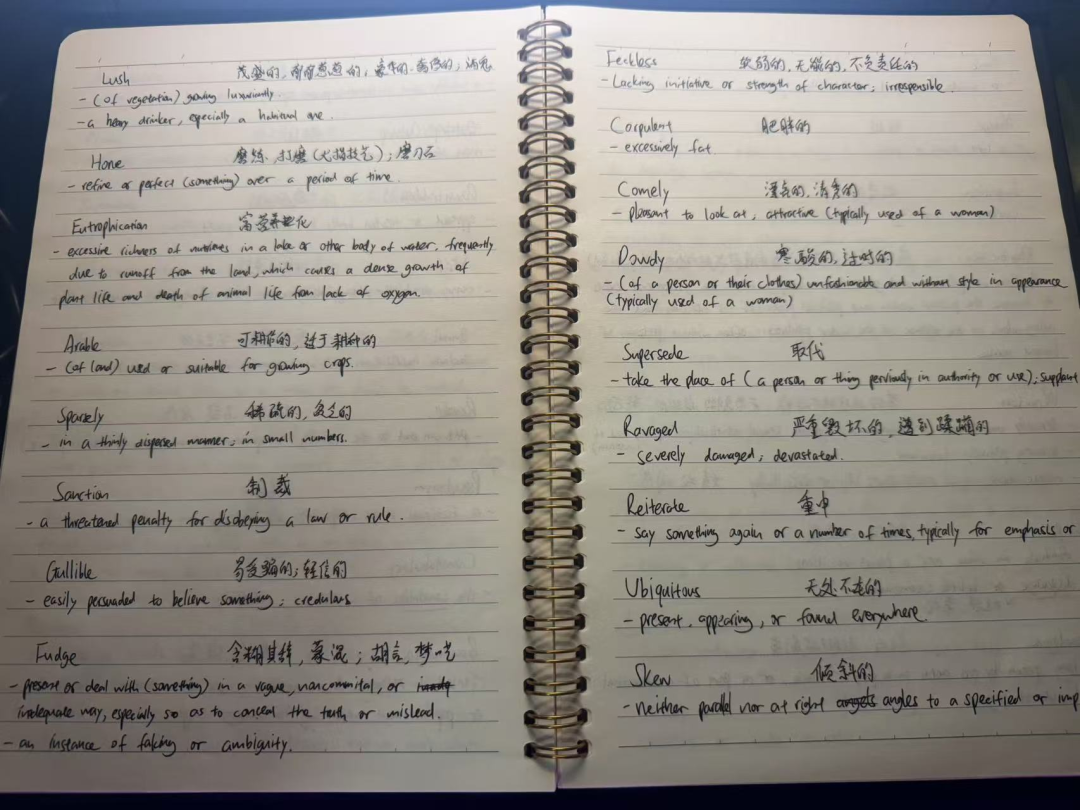 Lush 茂盛的，郁郁葱葱的，豪华的，酒鬼
- (of vegetation) growing luxuriantly
- a heavy drinker, especially a habitual one.
Hone 磨练，打磨（尤指技艺）；磨刀石
- refine or perfect (something) over a period of time.
Eutrophication 富营养化
- excessive richness of nutrients in a lake or other body of water, frequently
due to runoff from the land, which causes a dense growth of
plant life and death of animal life from lack of oxygen.
Arable 可耕作的，适于耕种的
- (of land) used or suitable for growing crops.
Sparsely 稀疏的，贫乏的
- in a thinly dispersed manner; in small numbers.
Sanction 制裁
- a threatened penalty for disobeying a law or rule.
Gullible 易受骗的；轻信的
- easily persuaded to believe something; credulous
Fudge 含糊其辞，蒙混；胡言，梦呓
- present or deal with (something) in a vague, noncommital, or
inadequate way, especially so as to conceal the truth or mislead.
- an instance of faking or ambiguity.
Feckless 软弱的，无能的，不负责任的
- Lacking initiative or strength of character; irresponsible.
Corpulent 肥胖的
- excessively fat
Comely 漂亮的，清秀的
- pleasant to look at, attractive (typically used of a woman)
Dowdy 寒酸的，过时的
- (of a person or their clothes) unfashionable and without style in appearance
(typically used of a woman)
Supersede 取代
- take the place of (a person or thing perviously in authority or use); supplant
Ravaged 严重毁坏的，遭到蹂躏的
- severely damaged; devastated.
Reiterate 重申
- say something again or a number of times, typically for emphasis or
Ubiquitous 无处不在的
- present, appearing, or found everywhere.
Skew 倾斜的
- neither parallel nor at right angles angles to a specified or imp